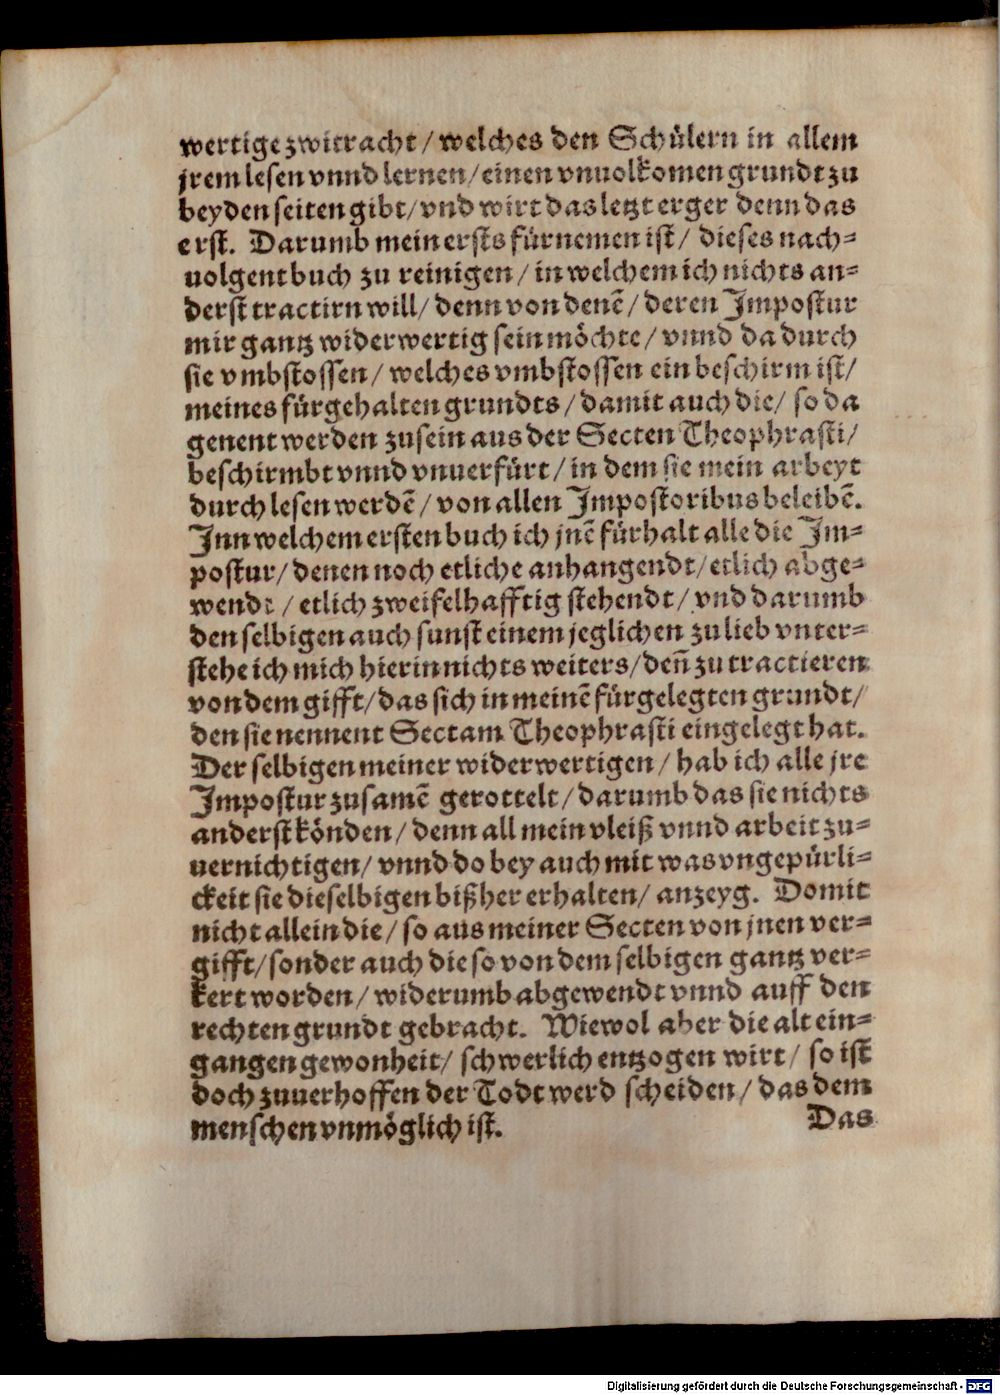 wertige zwitracht / welches den Schülern in allem
jrem lesen vnnd lernen / einen vnuolkomen grundt zu
beyden seiten gibt / vnd wirt das letzt erger denn das
erst. Darumb mein ersts fürnemen ist / dieses nach-
uolgent buch zu reinigen / in welchem ich nichts an-
derst tractirn will / denn von denē / deren Impostur
mir gantz widerwertig sein möchte / vnnd da durch
sie vmbstossen / welches vmbstossen ein beschirm ist /
meines fürgehalten grundts / damit auch die / so da
genent werden zusein aus der Secten Theophrasti /
beschirmbt vnnd vnuerfürt / in dem sie mein arbeyt
durch lesen werdē / von allen Impostoribus beleibē.
Inn welchem ersten buch ich jnē fürhalt alle die Im-
postur / denen noch etliche anhangendt / etlich abge-
wendt / etlich zweifelhafftig stehendt / vnd darumb
denselbigen auch sunst einem jeglichen zu lieb vnter-
stehe ich mich hierin nichts weiters / deñ zu tractieren
von dem gifft / das sich in meinē fürgelegten grundt /
den sie nennent Sectam Theophrasti eingelegt hat.
Der selbigen meiner widerwertigen / hab ich alle jre
Impostur zusamē gerottelt / darumb das sie nichts
anderst könden / denn all mein vleiß vnnd arbeit zu-
uernichtigen / vnnd do bey auch mit was vngepürli-
ckeit sie dieselbigen bißher erhalten / anzeyg. Domit
nicht allein die / so aus meiner Secten von jnen ver-
gifft / sonder auch die so von dem selbigen gantz ver-
kert worden / widerumb abgewendt vnnd auff den
rechten grundt gebracht. Wiewol aber die alt ein-
gangen gewonheit / schwerlich entzogen wirt / so ist
doch zuuerhoffen der Todt werd scheiden / das dem
menschen vnmöglich ist.
Das
Digitalisierung gefördert durch die Deutsche Forschungsgemeinschaft - DFG